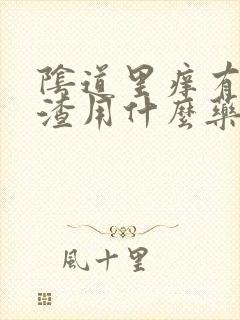 陰道里痒有
渣用什麼藥
風十里